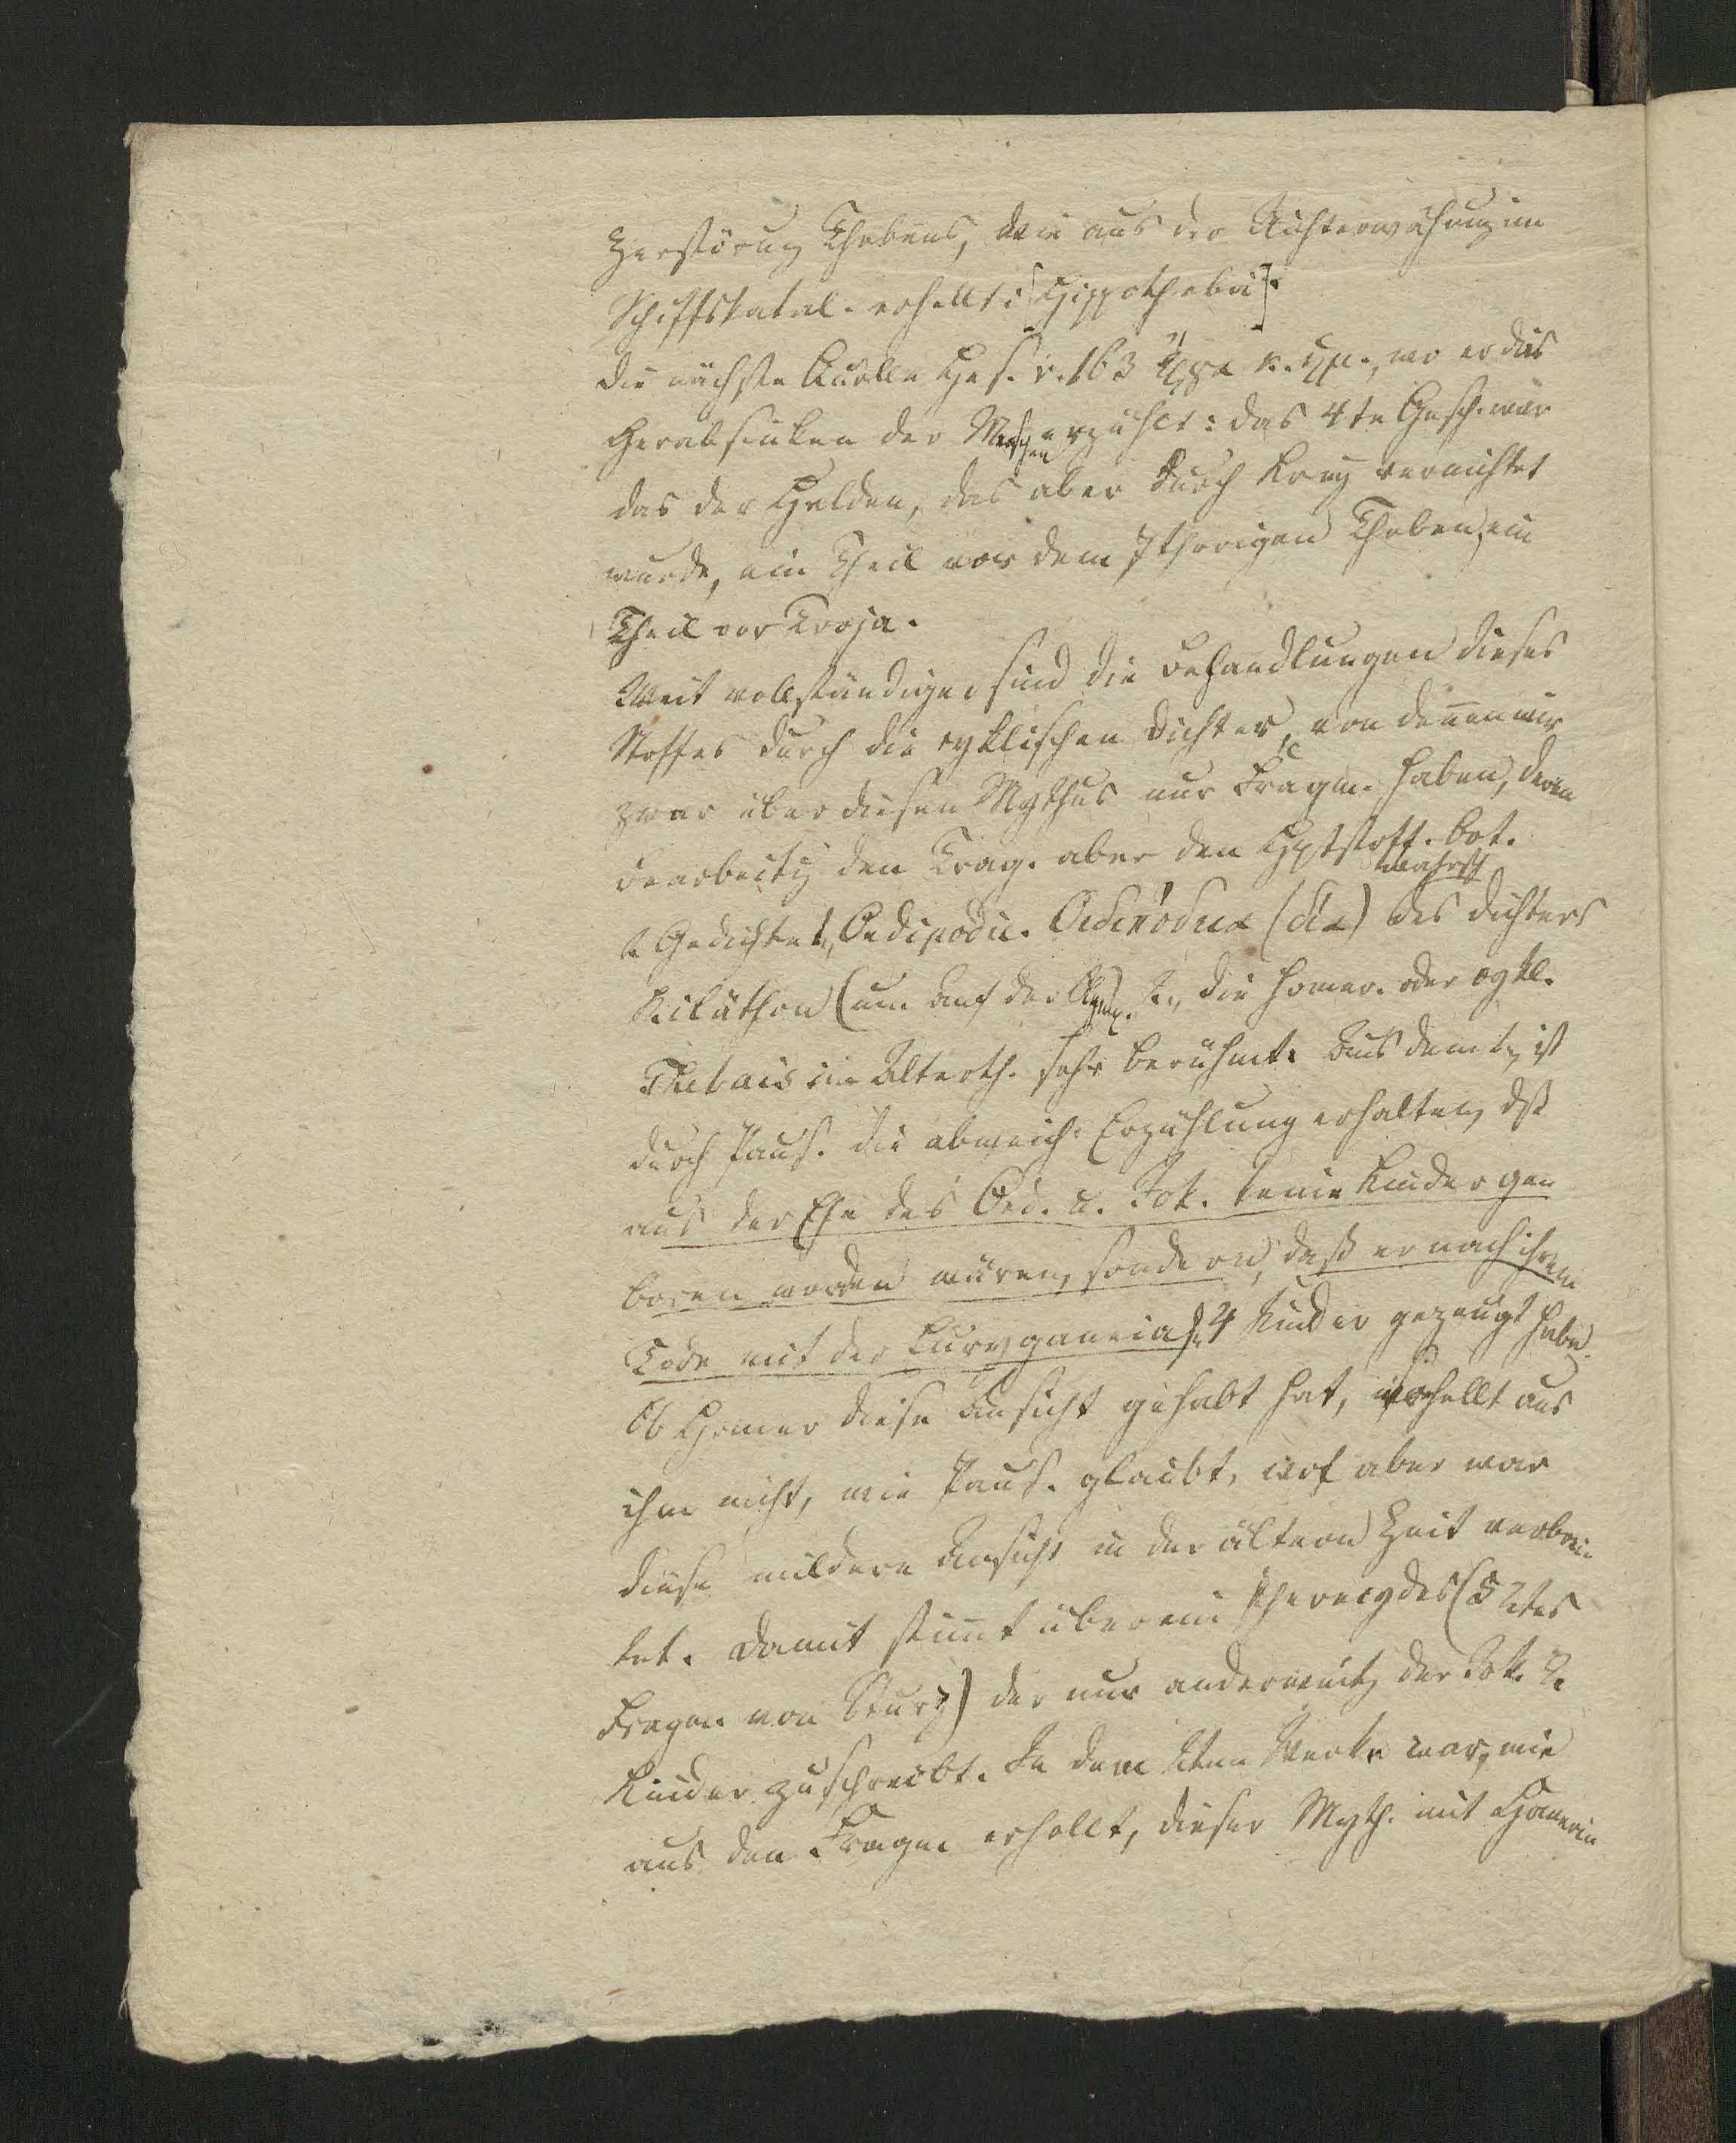 Zerstörung Thebens, wie aus der Nichterwähnung im
Schiffskatal. erhellt: [Hypothebä].
Die nächste Quelle Hes. v. 163 Ἔργα κ. ἡμ., wo er dies
Herabsinken der Menschen erzählt: das 4te Geschl. war
das der Helden, das aber durch Krieg vernichtet
wurde, ein Theil vor dem 7thorigen Theben, ein
Theil vor Troja.
Weit vollständiger sind die Behandlungen dieses
Stoffes durch die cyklischen Dichter, von denen wir
zwar über diesen Mythus nur Fragm. haben, deren
Bearbeitg den Trag. aber den Hptstoff bot.
2 Gedichte 1, Oedipodie. Οἰδιπόδεια (δία) des wahrsch Dichters
Kinäthon (um Anf der Olymp. 2, die homer. oder cykl.
Thebais im Alterth. sehr berühmt. Aus dem 1, ist
durch Paus. die abweich. Erzählung erhalten, dß
aus der Ehe des Oed. u. Jok. keine Kinder gen
boren worden wären, sondern, daß er nach ihrem
Tode mit der Euryganeia 4 Kinder gezeugt habe.
Ob Homer diese Ansicht gehabt hat, erhellt aus
ihm nicht, wie Paus. glaubt, wol aber war
diese mildere Ansicht in der ältern Zeit verbrei
tet. Damit stimt überein Pherecydes (52tes
Fragm. von Sturz) der nur anderweitg der Jok. 2
Kinder zuschreibt. In dem 2ten Werke war, wie
aus den Fragm. erhellt, dieser Myth. mit